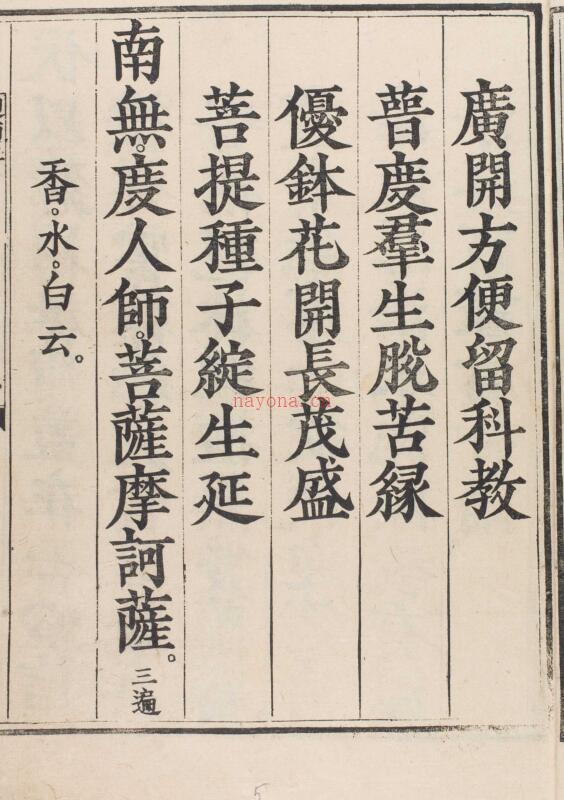 廣開方便留科教
普度羣生脫苦緣
優鉢花開長茂盛
菩提種子綻生延
南無。度人師。菩薩摩訶薩。三遍
香。水。白云。
nayona.cn
5